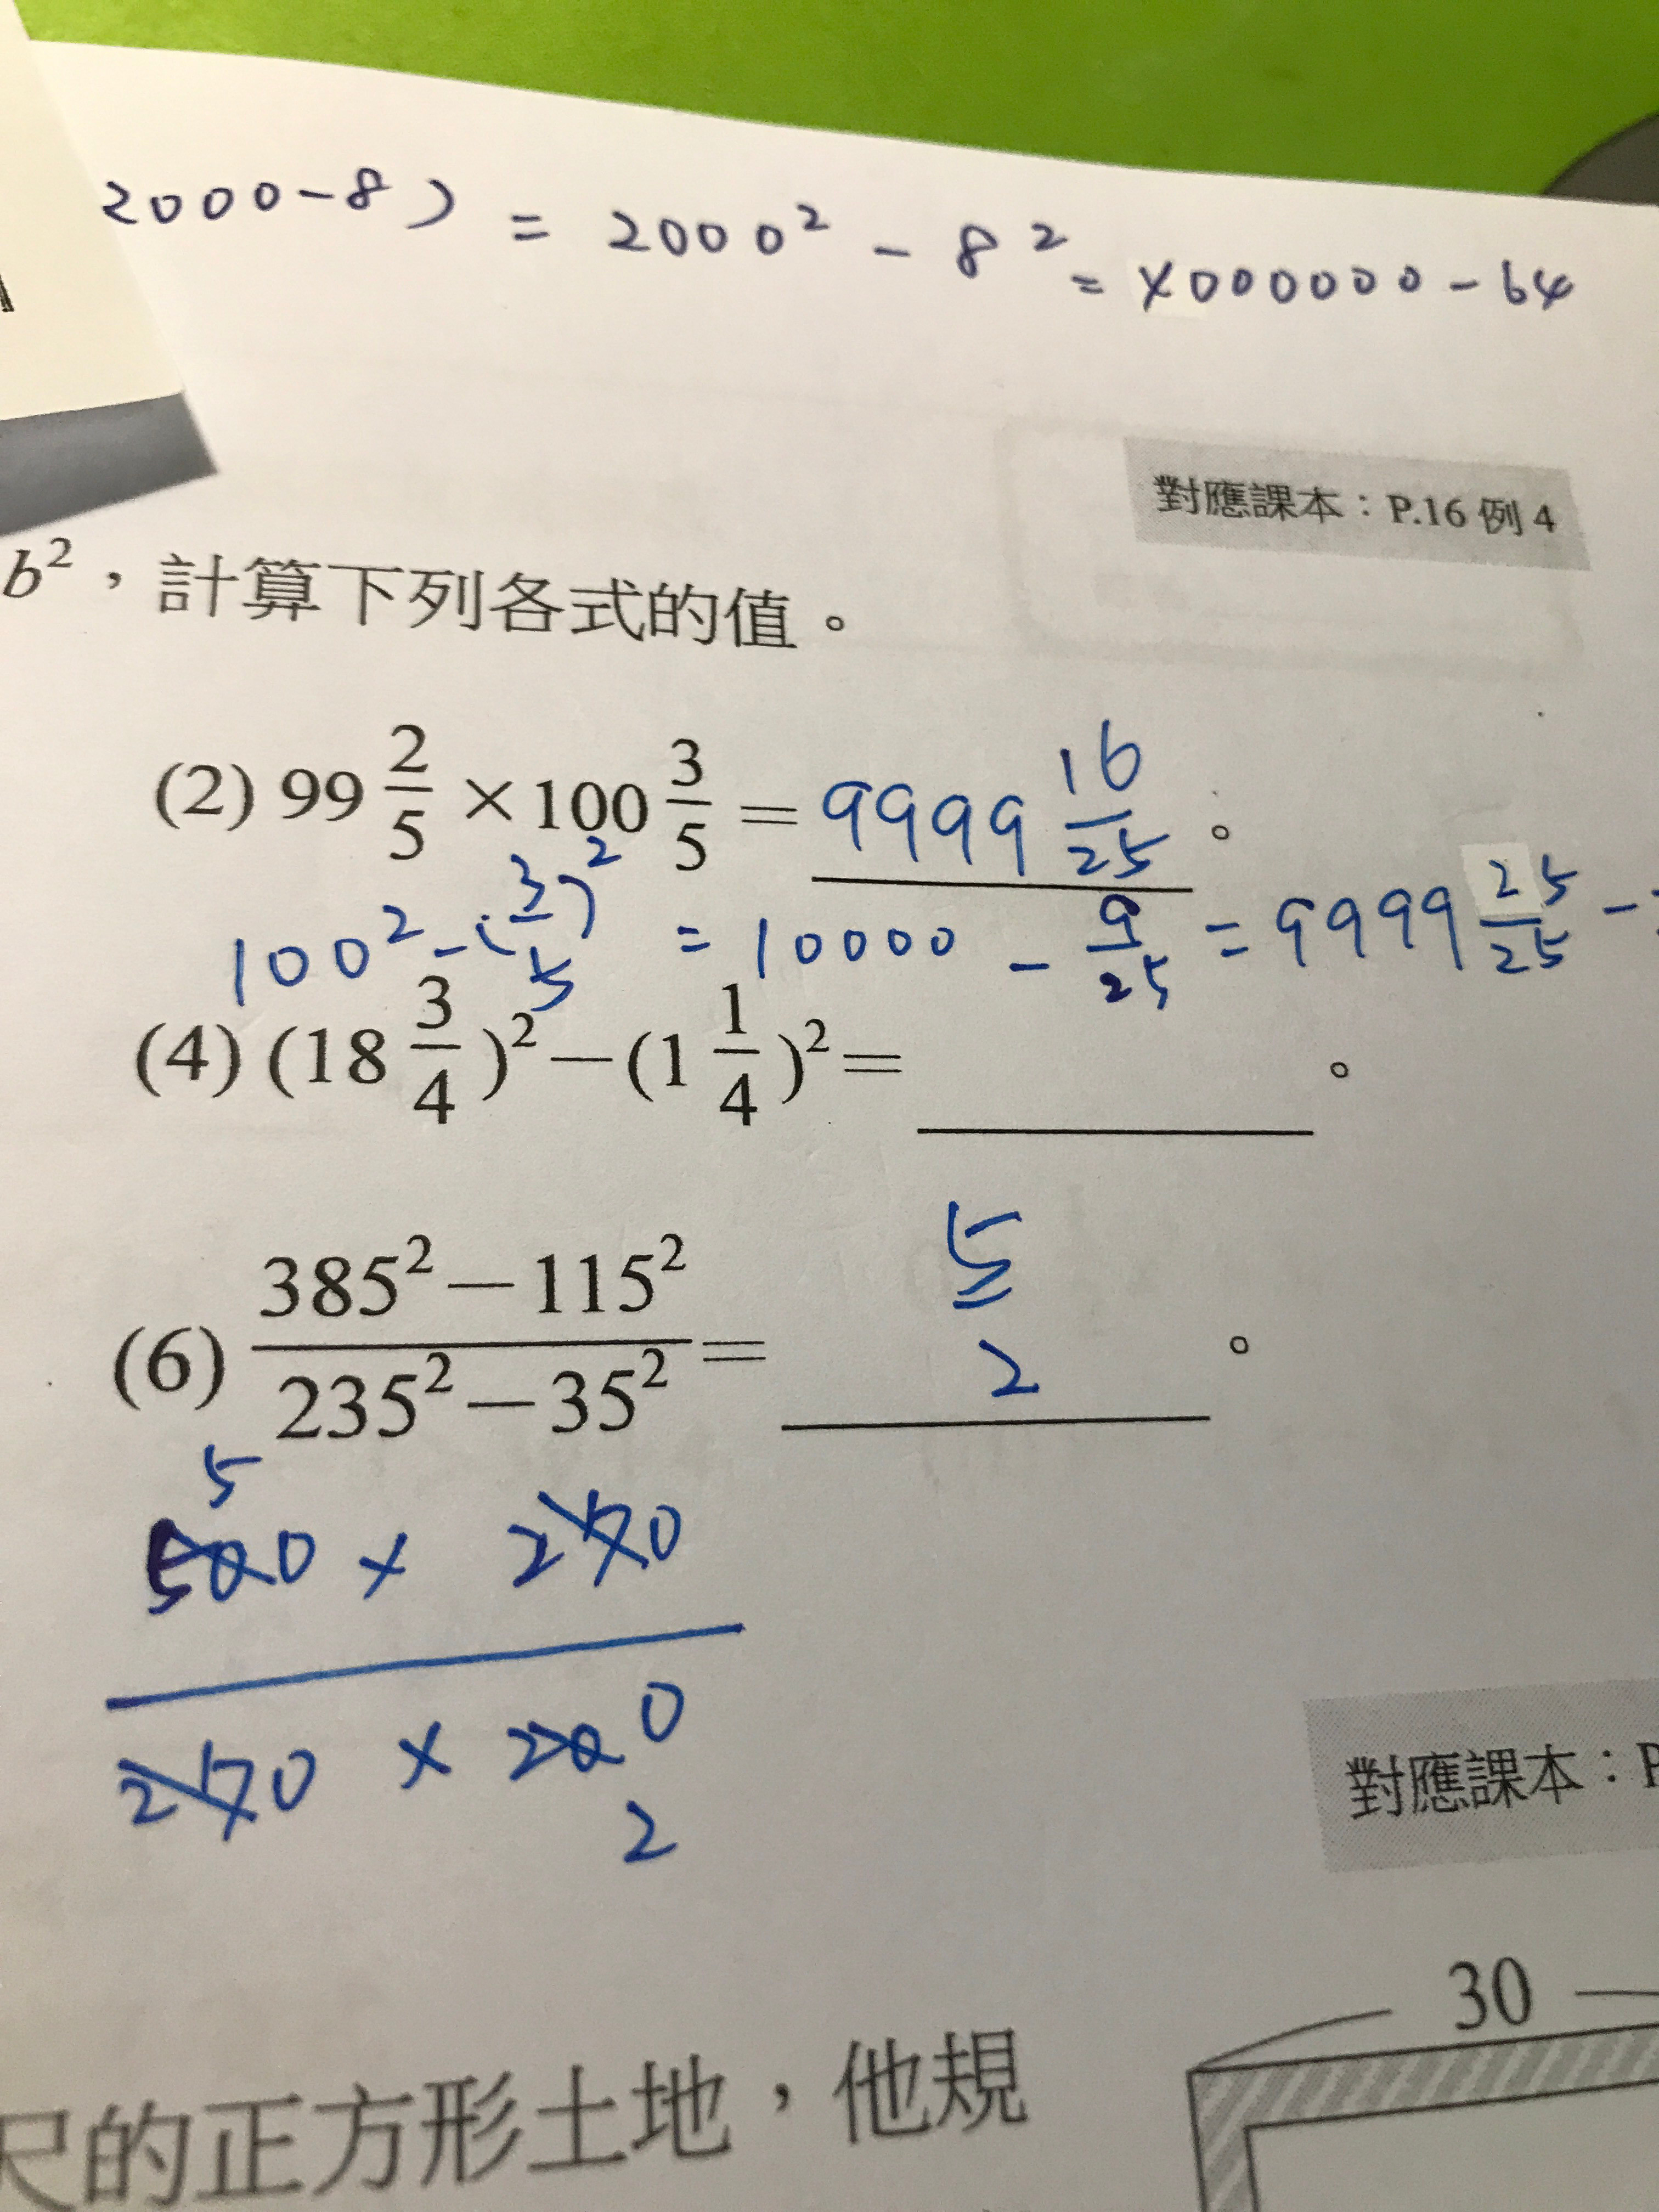 2000-8) = 2000² - 8² = 4000000 - 64
對應課本：P.16 例 4
b²，計算下列各式的值。
(2) 99 2/5 ×100 3/5 = 9999 16/25 。
100² - (3/5)² = 10000 - 9/25 = 9999 25/25 -
(4) (18 3/4)²－(1 1/4)²＝ 。
(6) (385²－115²)/(235²－35²) ＝ 5/2 。
5
500 × 270
270 × 200
2
對應課本：P
30
尺的正方形土地，他規